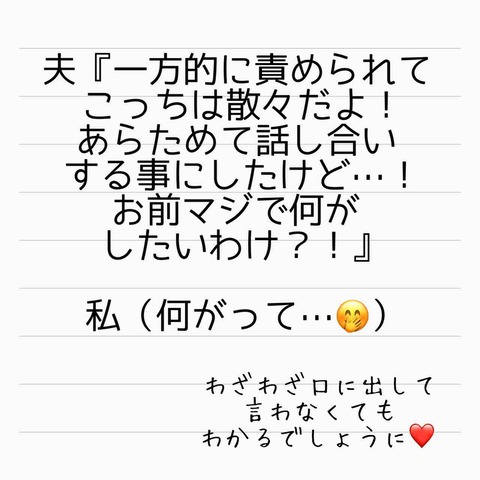 夫『一方的に責められて
こっちは散々だよ！
あらためて話し合い
する事にしたけど…！
お前マジで何が
したいわけ？！』
私（何がって…🤭）
わざわざ口に出して
言わなくても
わかるでしょうに❤️